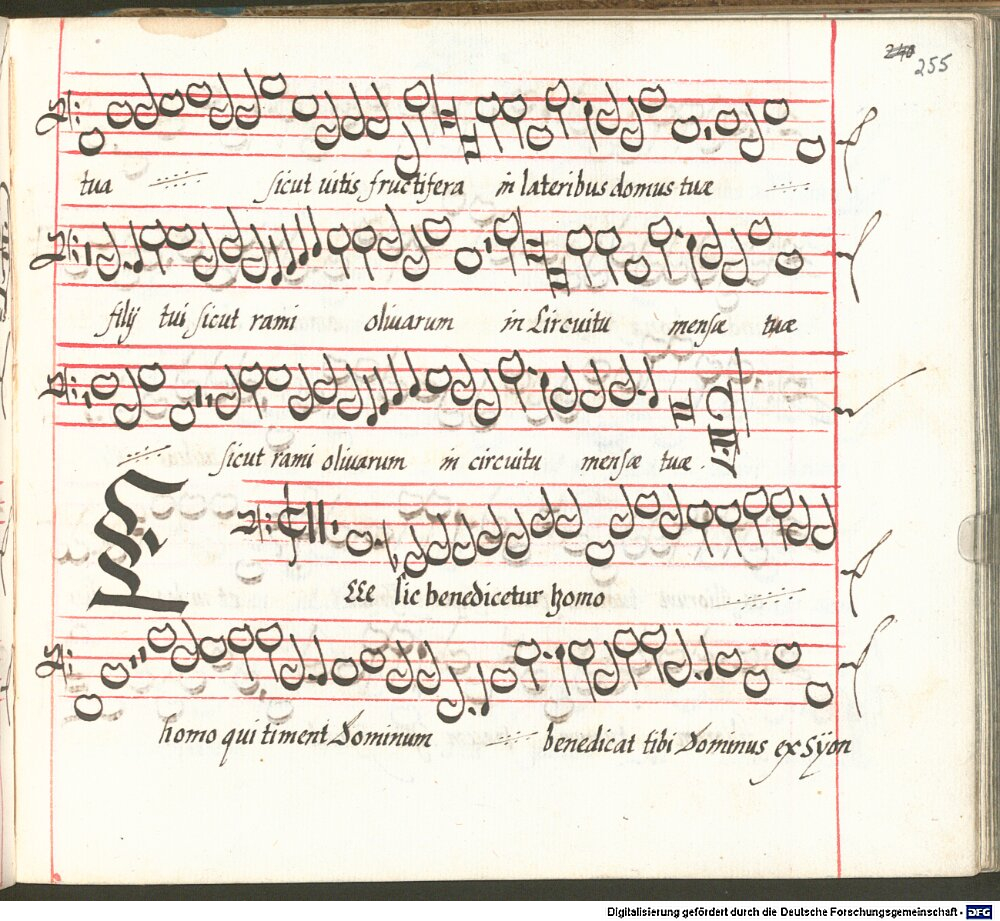 240 255
tua sicut uitis fructifera in lateribus domus tuæ
filij tui sicut rami oliuarum in Circuitu mensæ tuæ
sicut rami oliuarum in circuitu mensæ tuæ.
Ecce sic benedicetur homo
homo qui timent Dominum benedicat tibi Dominus ex Syon
Digitalisierung gefördert durch die Deutsche Forschungsgemeinschaft - DFG